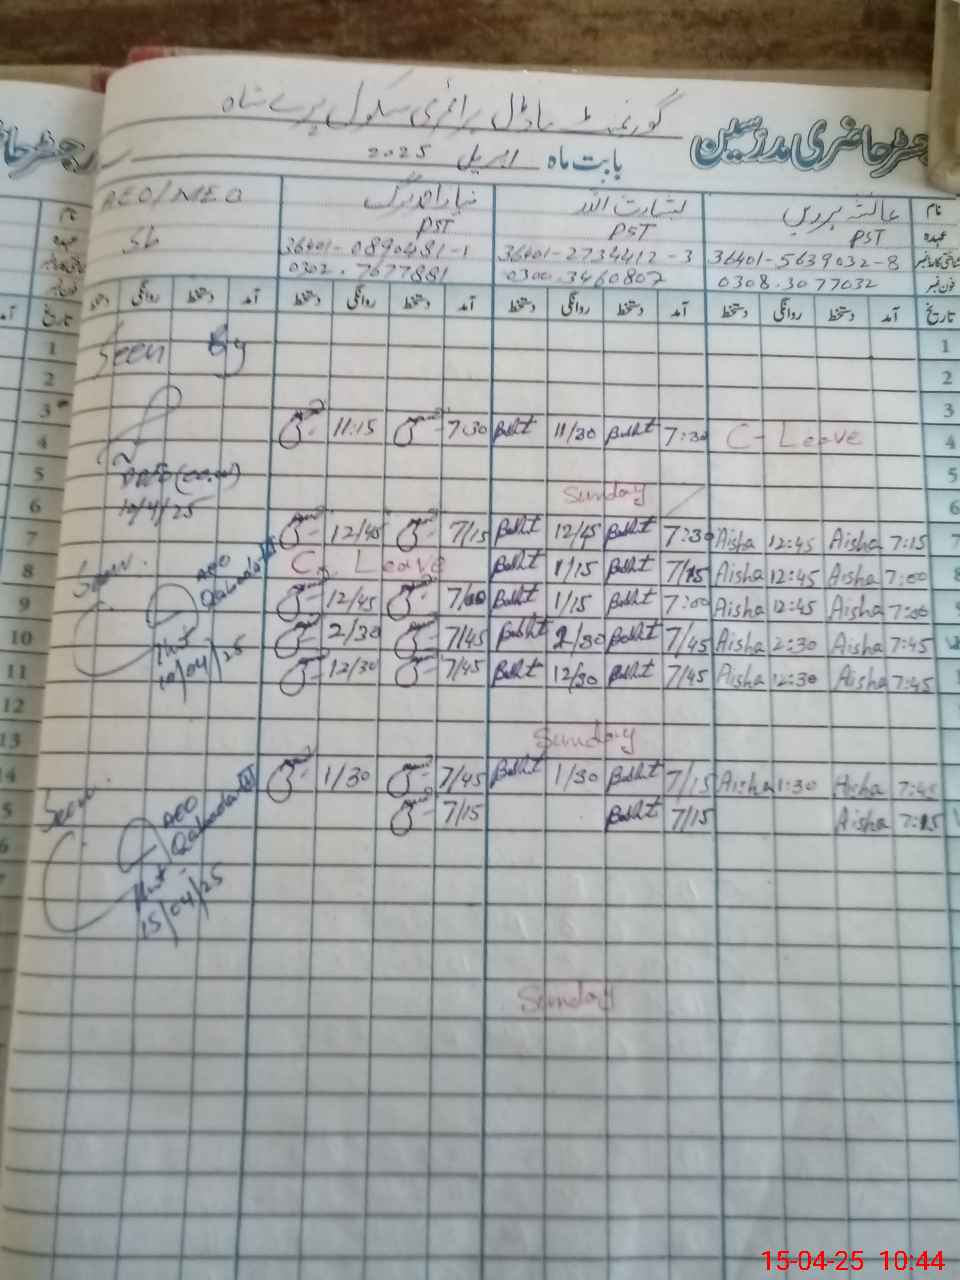 گورنمنٹ ماڈل پرائمری سکول پیرے شاہ
رجسٹر حاضری مدرسین بابت ماہ اپریل 2025
نام عائشہ پروین بشارت اللہ AEO/MEO
عہدہ PST PST PST
36401-5639032-8 36401-2734412-3 36401-0890481-1 Sb
فون نمبر 0308.3077032 0300.3460807 0302.7677881
تاریخ آمد دستخط روانگی دستخط آمد دستخط روانگی دستخط آمد دستخط روانگی دستخط آمد دستخط روانگی دستخط
1 Seen By
2
3
4 C-Leave 7:30 11/30 7:30 11:15
5
6 Sunday
10/4/25
7 7:15 Aisha 12:45 Aisha 7:30 12/45 7/15 12/45
8 7:00 Aisha 12:45 Aisha 7/15 1/15 C. Leave
Seen. AEO
9 7:00 Aisha 12:45 Aisha 7:00 1/15 7/00 12/45
10 7:45 Aisha 2:30 Aisha 7/45 2/30 7/45 2/30
10/04/25
11 7:45 Aisha 12:30 Aisha 7/45 12/30 7/45 12/30
12
13 Sunday
14 7:45 Aisha 1:30 Aisha 7/15 1/30 7/45 1/30
Seen AEO
7:15 Aisha 7/15 7/15
15/04/25
Sunday
15-04-25 10:44